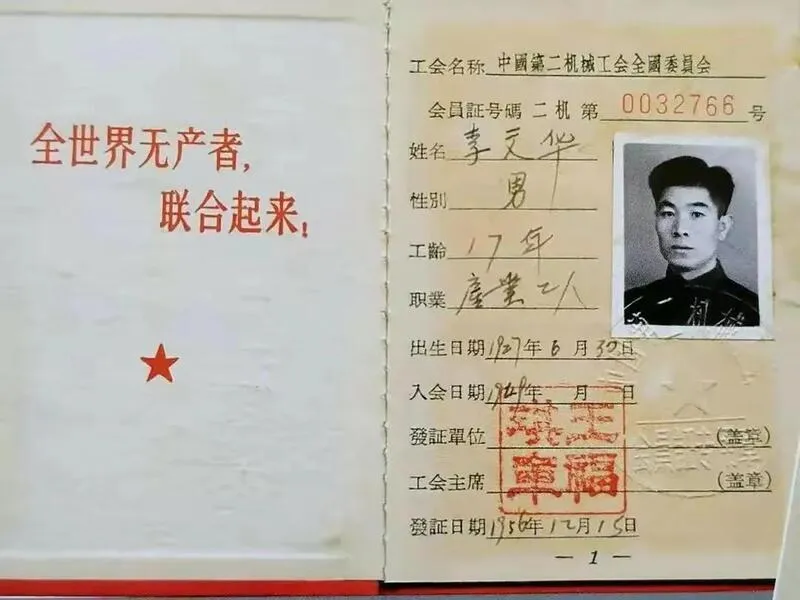 全世界无产者,
联合起来!
工会名称 中國第二机械工会全國委員会
会員証号碼 二机 第 0032766 号
姓名 李文华
性別 男
工齡 17年
职業 產業工人
出生日期 1927年 6 月 30日
入会日期 1949年 月 日
發証單位 (盖章)
工会主席 (盖章)
發証日期 1956年 12月 15日
— 1 —